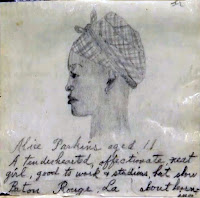 Alice Parkins aged 11
A tenderhearted, affectionate, neat
girl, good to work & studious, but slow
Baton Rouge, La about